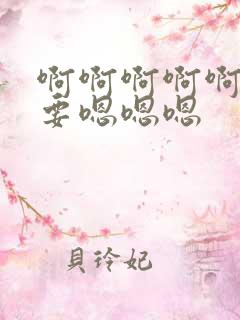 啊啊啊啊啊
要嗯嗯嗯
貝玲妃